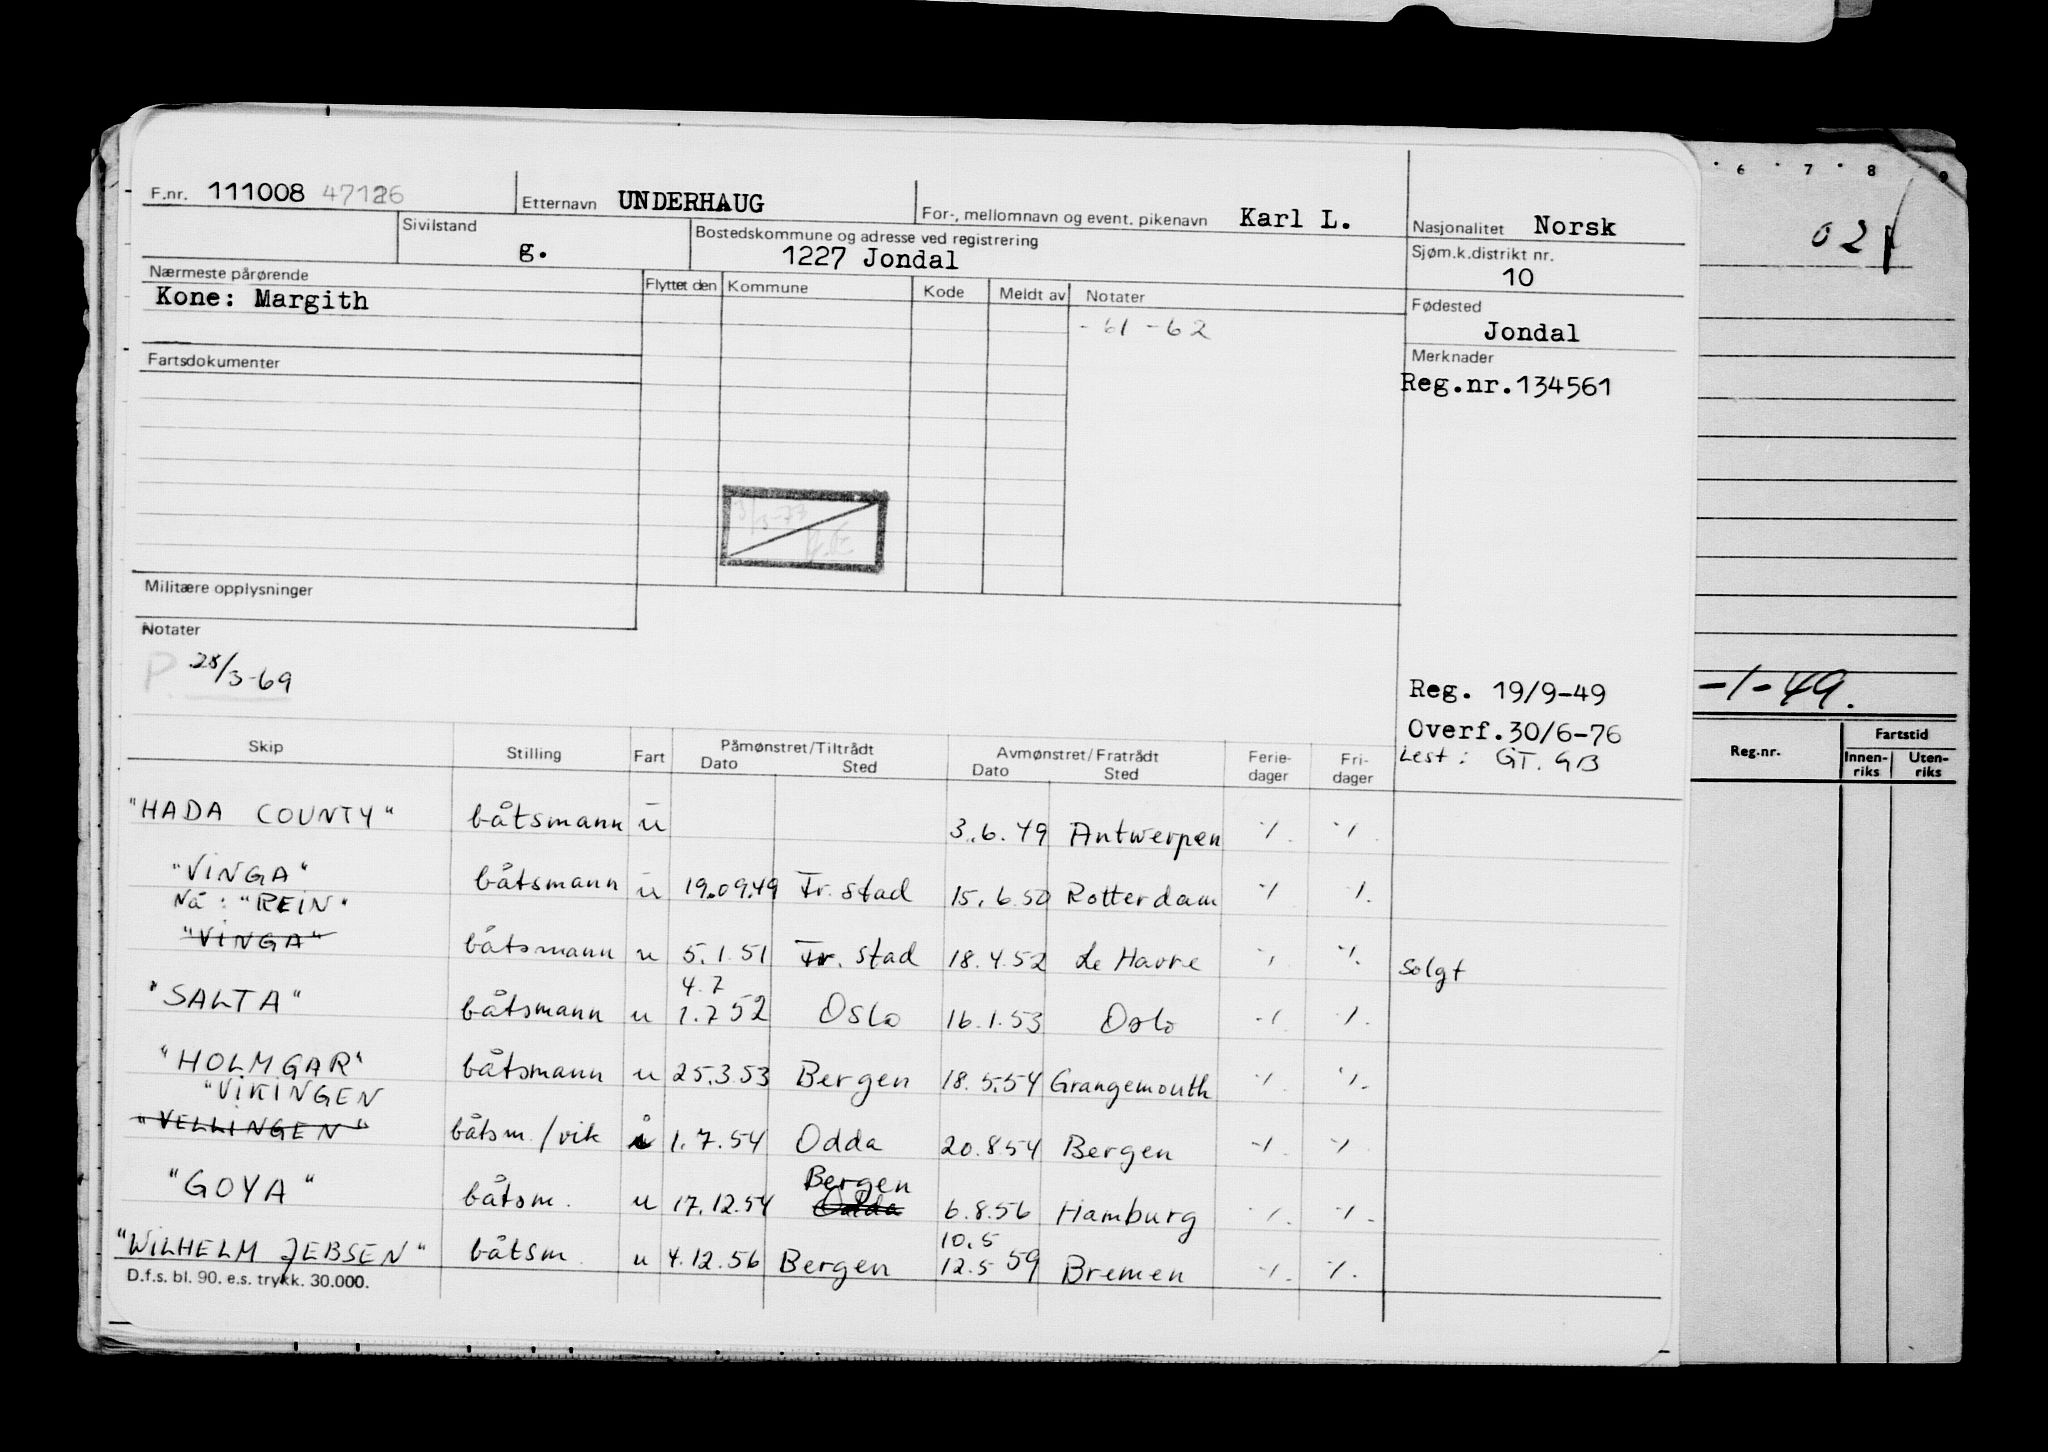 F.nr. 111008 47126 Etternavn UNDERHAUG For-, mellomnavn og event. pikenavn Karl L. Nasjonalitet Norsk
Sivilstand g. Bostedskommune og adresse ved registrering 1227 Jondal Sjøm.k.distrikt nr. 10
Nærmeste pårørende Flyttet den Kommune Kode Meldt av Notater Fødested
Kone: Margith - 61 - 62 Jondal
Fartsdokumenter Merknader
Reg.nr.134561
Militære opplysninger
Notater
P 28/3-69
Reg. 19/9-49
Overf.30/6-76
Lest: GT. GB
Skip Stilling Fart Påmønstret/Tiltrådt Dato Sted Avmønstret/Fratrådt Dato Sted Ferie-dager Fri-dager
"HADA COUNTY" båtsmann u 3.6.49 Antwerpen -/. -/.
"VINGA" båtsmann u 19.09.49 Fr.stad 15.6.50 Rotterdam -/. -/.
Nå: "REIN"
"VINGA" båtsmann u 5.1.51 Fr.stad 18.4.52 Le Havre -/. -/. Solgt
4.7
"SALTA" båtsmann u 1.7 52 Oslo 16.1.53 Oslo -/. -/.
"HOLMGAR" båtsmann u 25.3.53 Bergen 18.5.54 Grangemouth -/. -/.
"VIKINGEN
"VELLINGEN" båtsm./vik i 1.7.54 Odda 20.8.54 Bergen -/. -/.
Bergen
"GOYA" båtsm. u 17.12.54 Odda 6.8.56 Hamburg -/. -/.
10.5
"WILHELM JEBSEN" båtsm. u 4.12.56 Bergen 12.5 59 Bremen -/. -/.
D.f.s. bl. 90. e.s. trykk. 30.000.
6 7 8 9
02
-1-49.
Reg.nr. Fartstid
Innen-riks Uten-riks